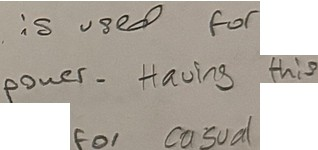 is used for
power. Having this
for casual